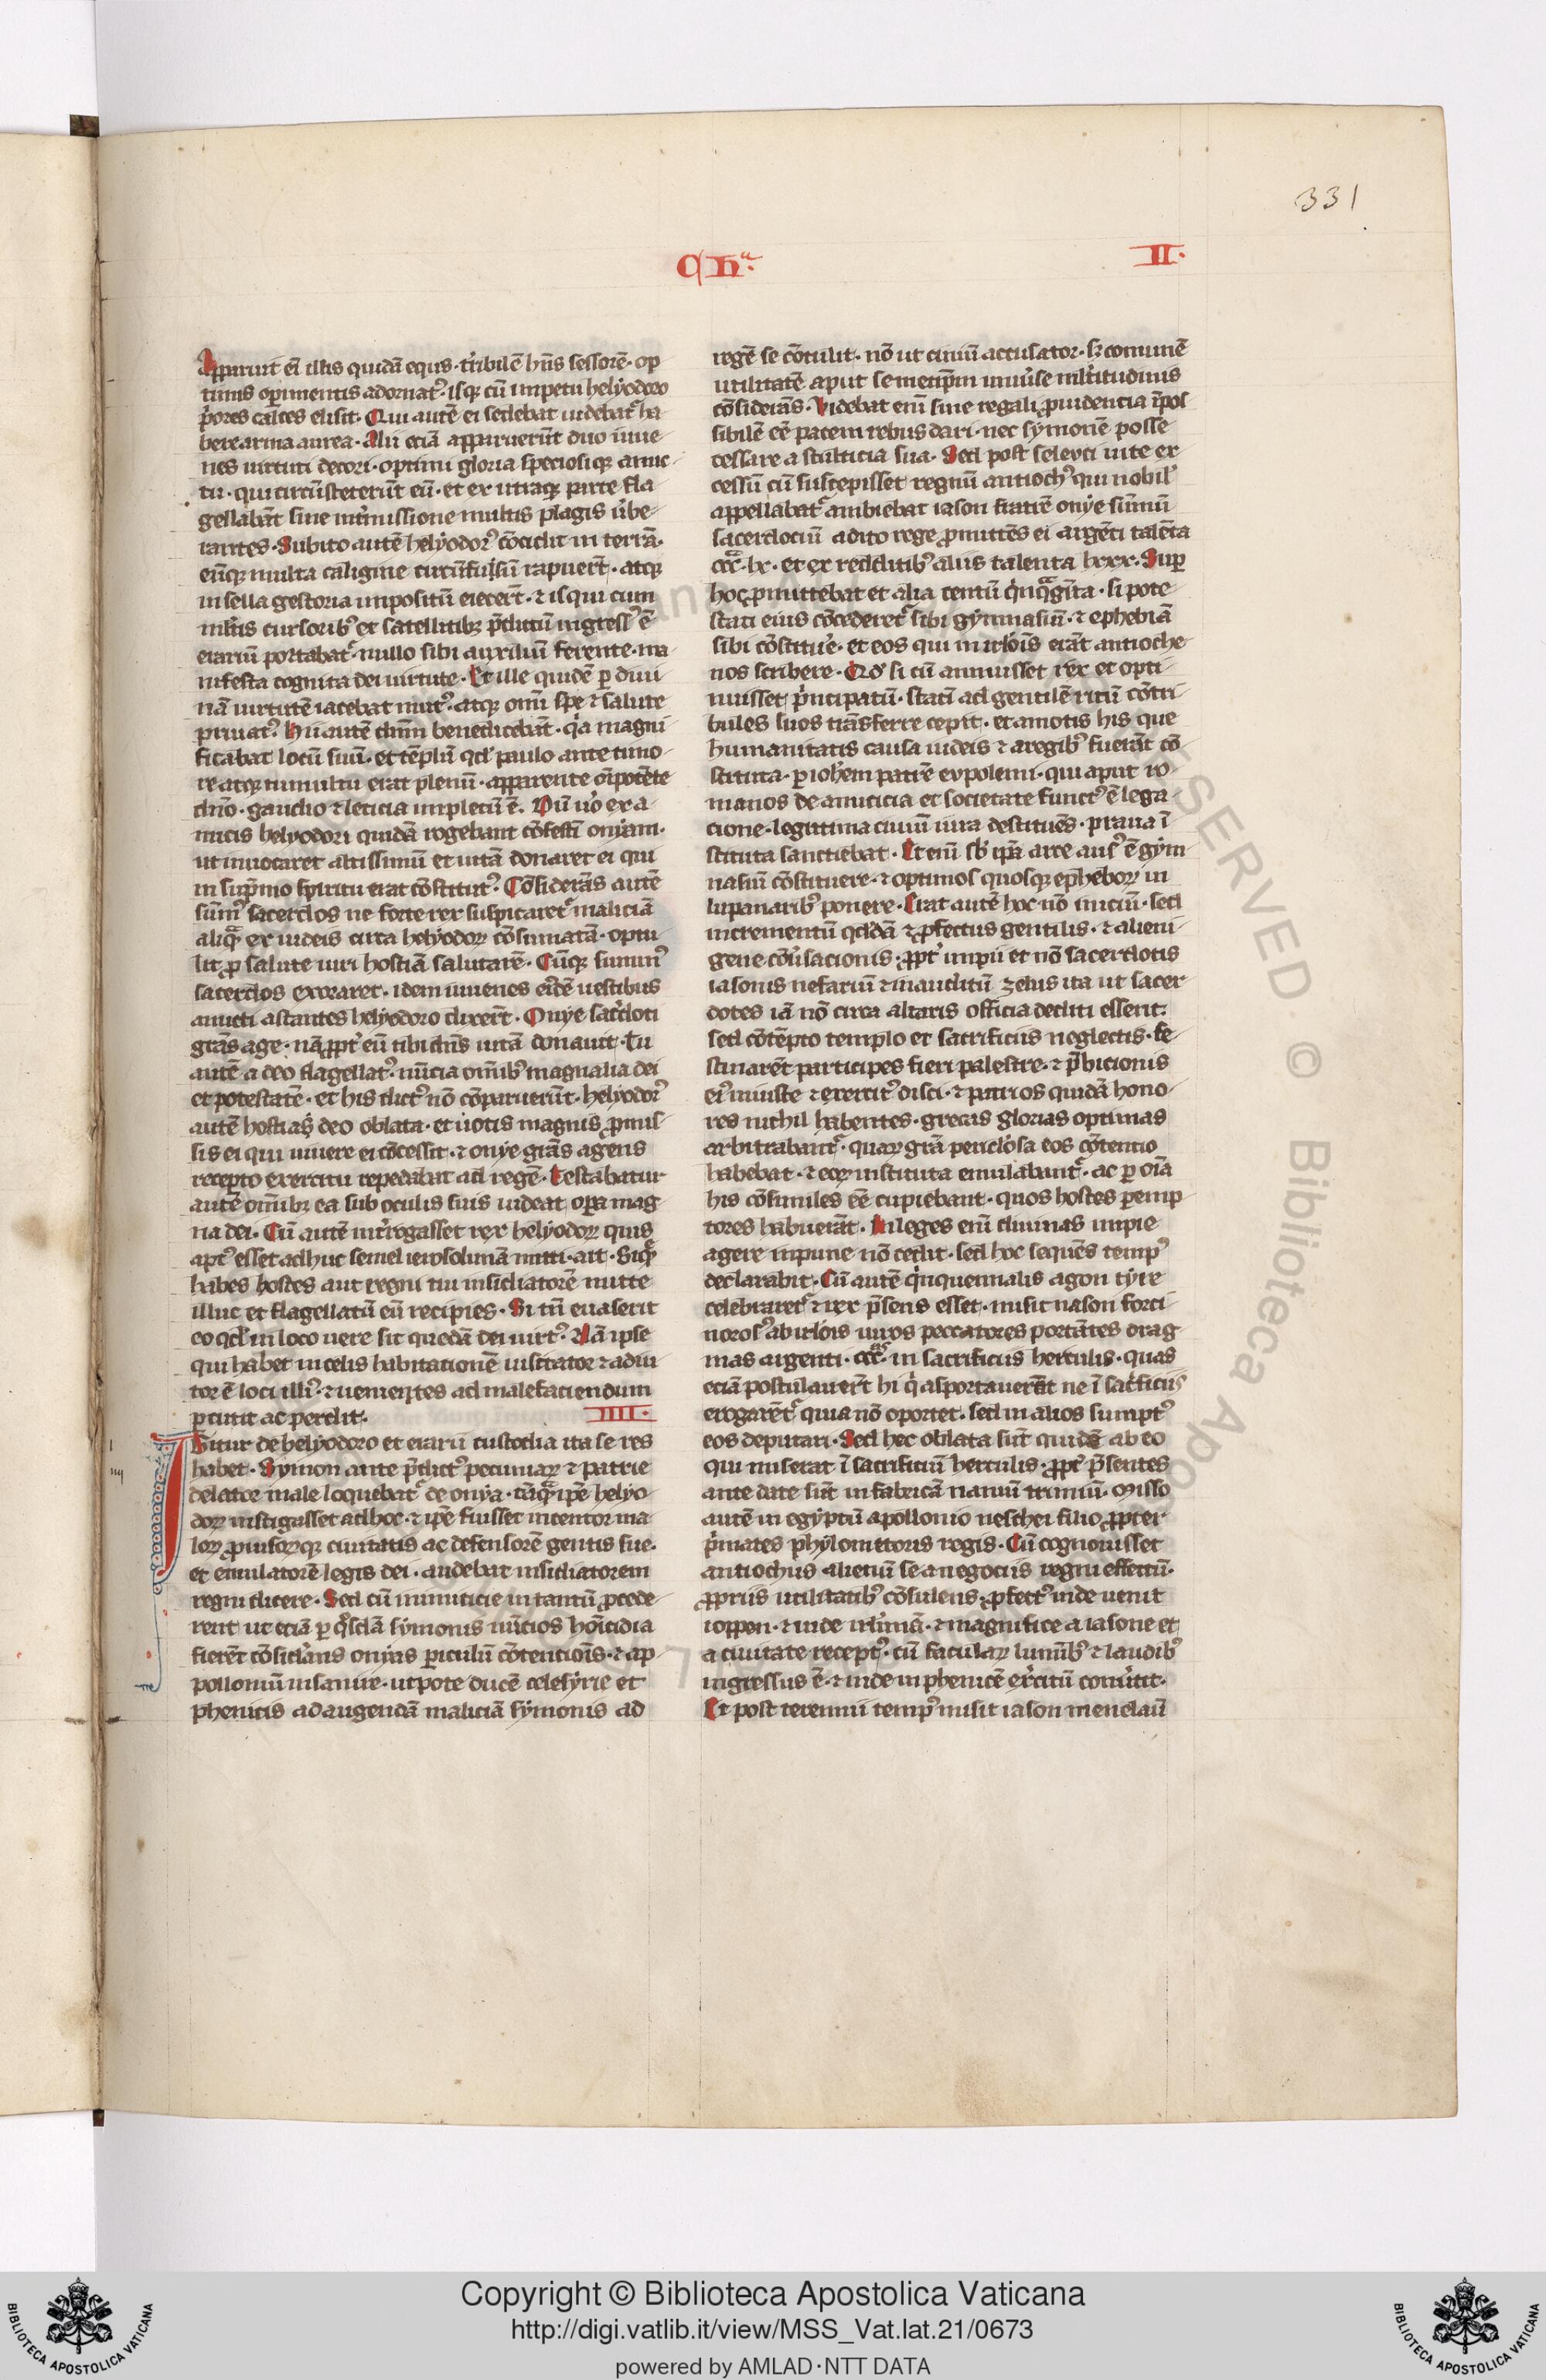 331
Mᵃ. II.
Apparuit eī illis quidā equs. t'ribilē hn̄s sessorē. op
timis op̱imentis adornat᾽. isqꝫ cū impetu helyodoro
p'ores calces elisit. Qui autē ei sedebat uidebat᷑ ha
bere arma aurea. Alii eciā apparuerūt duo iuue
nes uirtuti decori. optimi gloria speciosiqꝫ amic
tu. qui circūsteterūt eū. et ex utraqꝫ parte fla
gellabāt sine int'missione multis plagis u'be
rantes. Subito autē helyodor᾽ cōcidit in terrā.
eūqꝫ multa caligine circūfusū rapuer̄t. atqꝫ
in sella gestoria impositū eiecer̄t. ⁊ is qui cum
mltis cursorib᾽ et satellitibꝫ p̄dictū ingress᾽ ē
erariū portabat᷑. nullo sibi auxiliū ferente. ma
nifesta cognita dei uirtute. Et ille quidē ꝑ diui
nā uirtutē iacebat mut᾽. atqꝫ omī spe ⁊ salute
priuat᾽. Hii autē dnm̄ benedicebāt. q'a magni
ficabat locū suū. et tēplū qd' paulo ante timo
re atqꝫ tumultu erat plenū. apparente oīpotēte
dn̄o. gaudio ⁊ leticia impletū ē. Tū u'o ex a
micis helyodori quidā rogebant cōfestī onyam.
ut inuocaret altissimū et uitā donaret ei qui
in sup̄mo spiritu erat cōstitut᾽. Cōsiderās autē
sūm᾽ sacerdos ne forte rex suspicaret᷑ maliciā
aliqᵃ ex iudeis circa helyodoꝝ cōsumatā. optu
lit ꝓ salute uiri hostiā salutarē. Cūqꝫ summ᾽
sacerdos exoraret. idem iuuenes eīdē uestibus
amicti astantes helyodoro dixer̄t. Onye sac'doti
grās age. nā ꝓpt' eū tibi dn̄s uitā donauit. Tu
autē a deo flagellat᾽. nūcia omīb᾽ magnalia dei
et potestatē. et his dict᾽ nō cōparuerūt. helyodor᾽
autē hostias deo oblata. et uotis magnis ꝓmis
sis ei qui uiuere ei cōcessit. ⁊ onye grās agens
recepto exercitu repedabat ad regē. Testabatur
autē omībꝫ ea sub oculis suis uideat oꝑa mag
na dei. Cū autē int'rogasset rex helyodoꝝ quis
apt᾽ esset adhuc semel ierosolimā mitti. ait. Siqᵃ
habes hostes aut regni tui insidiatorē mitte
illuc et flagellatū eū recipies. Si tn̄ euaserit
eo qd' in loco uere sit quedā dei uirt᾽. Nā ipse
qui habet in celis habitationē uisitator ⁊ adiu
tor ē loci illi᾽. ⁊ uenientes ad malefaciendum
ꝑcutit ac perdit. IIII.
Igitur de helyodoro et erarii custodia ita se res
habet. Symon ante p̄dict᾽ pecuniaꝝ ⁊ patrie
delator male loquebat᷑ de onya. tāqᵃ ip̄e helyo
doꝝ instigasset ad hoc. ⁊ ip̄e fuisset incentor ma
loꝝ ꝓuisorꝫqꝫ ciuitatis ac defensorē gentis sue.
et emulatorē legis dei. audebat insidiatorem
regni dicere. Sed cū inimiticie in tantū ꝓcede
rent ut eciā ꝑ q'sdā symonis nūcios homicidia
fierēt cōsid'ans onyas ꝑiculū cōtentiois. ⁊ ap
pollonium insanire. utpote ducē celesyrie et
phenicis ad augendā maliciā symonis ad
regē se cōtulit. nō ut ciuiū accusator. sꝫ comunē
utilitatē aput semetip̄m uniu'se mltitudinis
cōsiderās. Uidebat enī sine regali ꝓuidencia īpos
sibilē eē pacem rebus dari. nec symonē posse
cessare a stulticia sua. Sed post seleuci uite ex
cessū cū suscepisset regnū antioch᾽ qui nobil'
appellabat᷑ ambiebat iason fratrē onye sūmū
sacerdociū adito rege ꝓmittēs ei argēti talēta
ccc. lx. et ex redditib᾽ aliis talenta lxxx. Suꝑ
hoc ꝓmittebat et alia centū q'nqᵃgita. si pote
stati eius cōcederet᷑ sibi gymnasiū. ⁊ ephebiā
sibi cōstitue. et eos qui in irlōis erāt antioche
nos scribere. Qd' si cū annuisset rex et opti
nuisset p'ncipatū. statī ad gentilē ritū cōtri
bules suos trāsferre cepit. et amotis his que
humanitatis causa iudeis ⁊ a regib᾽ fuerāt cō
stituta. ꝑ ioh'em patrē eupolemi. qui aput ro
manos de amicicia et societate funct᾽ ē lega
cione. legitima ciuiū iura destituēs. praua ī
stituta sanctiebat. Et enī sb' ip̄a arce aus᾽ ē gym
nasiū cōstituere. ⁊ optimos quosqꝫ epheboꝝ in
lupanarib᾽ ponere. Erat autē hoc nō iniciū. sed
incrementū qd'dā ⁊ ꝓfectus gentilis. ⁊ alieni
gene cōu'sacionis. ꝓpt' impii et nō sacerdotis
iasonis nefariū ⁊ inauditū zelus ita ut sacer
dotes iā nō circa altaris officia dediti essent.
sed cōtēpto templo et sacrificiis neglectis. fe
stinarēt participes fieri palestre. ⁊ p̄bicionis
ei᾽ iniuste ⁊ exercit᾽ disci. ⁊ patrios quidā hono
res nichil habentes. grecas glorias optimas
arbitrabant᷑. quaꝝ grā periclosa eos cōtentio
habebat. ⁊ eoꝝ instituta emulabunt᷑. ac ꝑ oīa
his cōsimiles eē cupiebant. quos hostes ꝑemp
tores habuerāt. In leges enī diuinas impie
agere inpune nō cedit. sed hoc sequēs temp᾽
declarabit. Cū autē q'nquennalis agon tyre
celebraret᷑ ⁊ rex p̄sens esset. misit iason forci
noros᾽ ab irlōis uiros peccatores portātes drag
mas argenti. ccc. in sacrificiis herculis. quas
eciā postulauer̄t hi q' asportauerūt ne ī sac'ficiis
erogarēt᷑ quia nō oportet. sed in alios sumpt᾽
eos deputari. Sed hec oblata sūt quidē ab eo
qui miserat ī sacrificiū herculis. ꝓpt' p̄sentes
ante date sūt in fabricā nauiū trimū. Misso
autē in egyptū apollonio neschei filio ꝓpter
p'mates phylomttoris regis. Cū cognouisset
antiochus alienū se a negociis regni effectū.
ꝓpriis utilitatib᾽ cōsulens. ꝓfect᾽ inde uenit
ioppen. ⁊ inde irl'imā. ⁊ magnifice a iasone et
a ciuitate recept᾽. cū faculaꝝ lumīb᾽ ⁊ laudib᾽
ingressus ē. ⁊ inde in phenicē ex'citū conu'tit.
Et post terennii temp᾽ misit iason menelaū
Copyright © Biblioteca Apostolica Vaticana
http://digi.vatlib.it/view/MSS_Vat.lat.21/0673
powered by AMLAD·NTT DATA
BIBLIOTECA APOSTOLICA VATICANA
BIBLIOTECA APOSTOLICA VATICANA